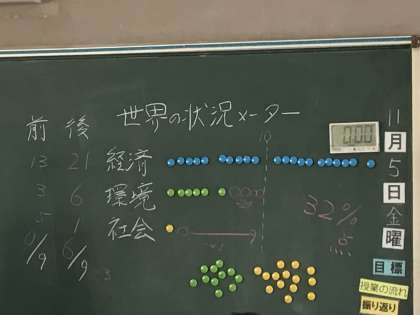 世界の状況メーター
前 後
13 21 経済
3 6 環境
5 1 社会
0/9 6/9
10
32%
0:00
11
月
5
日
金
曜
目標
授業の流れ
振り返り